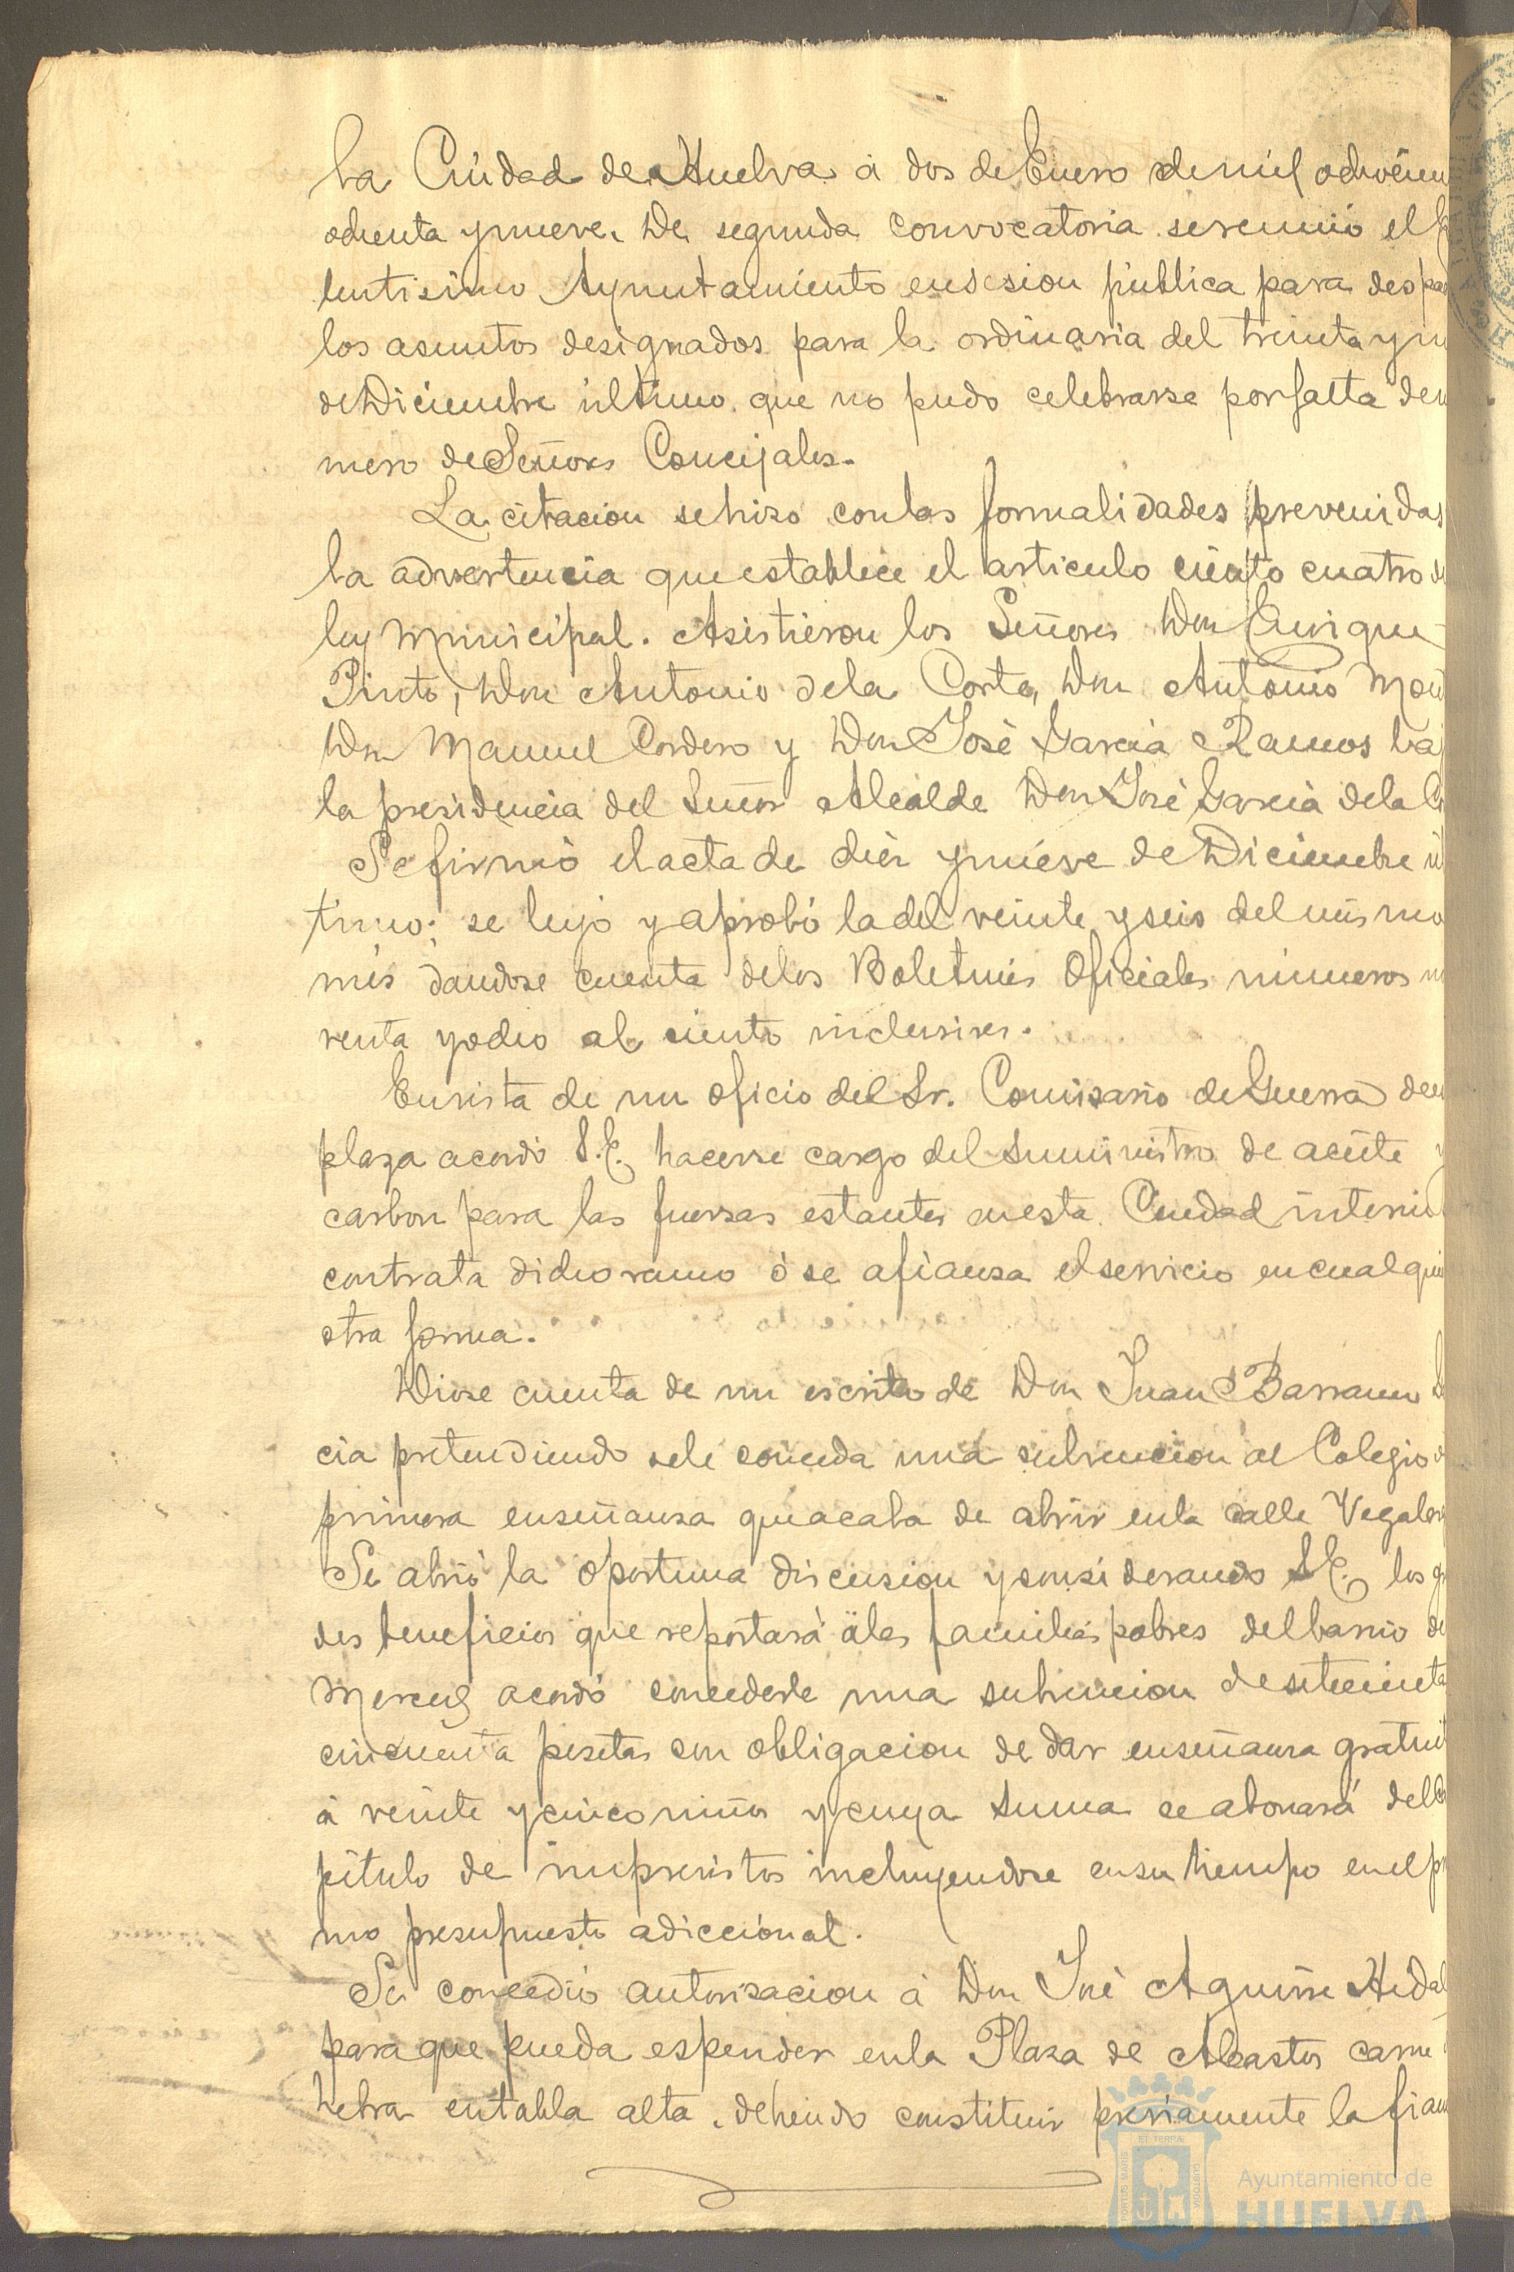 la Ciudad de Huelva á dos de Enero de mil ochocien
ochenta y nueve. De segunda convocatoria se reunió el
lentisimo Ayuntamiento en sesion pública para despa
los asuntos designados para la ordinaria del treinta y un
de Diciembre último que no pudo celebrarse por falta de nu
mero de Señores Concejales.
La citacion se hizo con las formalidades prevenidas
la advertencia que establece el articulo ciento cuatro de
ley Municipal. Asistieron los Señores Don Enrique
Pinto, Don Antonio de la Corte, Don Antonio Mon
Don Manuel Cordero y Don José Garcia Ramos baj
la presidencia del Señor Alcalde Don José Garcia de la
Se firmó el acta de diez y nueve de Diciembre úl
timo: se leyó y aprobó la del veinte y seis del mismo
mes dandose cuenta de los Boletines Oficiales números no
venta y ocho al ciento inclusives.
En vista de un oficio del Sr. Comisario de Guerra de
plaza acordó S.E. hacerse cargo del suministro de aceite y
carbon para las fuerzas estantes en esta Ciudad interin
contrata dicho ramo ó se afianza el servicio en cualqui
otra forma.
Diose cuenta de un escrito de Don Juan Barranco
cia pretendiendo se le conceda una subvencion al Colegio
primera enseñanza que acaba de abrir en la calle Vega
Se abrió la oportuna discusion y considerando S.E. los
des beneficios que reportará á las familias pobres del barrio de
Merced acordó concederle una subvencion de setecienta
cincuenta pesetas con obligacion de dar enseñanza gratuit
á veinte y cinco niños y cuya suma se abonará del
pitulo de imprevistos incluyendose en su tiempo en el
mo presupuesto adiccional.
Se concedió autorizacion á Don José Aguirre Hidal
para que pueda espender en la Plaza de Abastos carne
hebra en tabla alta, debiendo constituir previamente la fian
ET TERRA
PORTUS MARIS
CUSTODIA
Ayuntamiento de
HUELVA